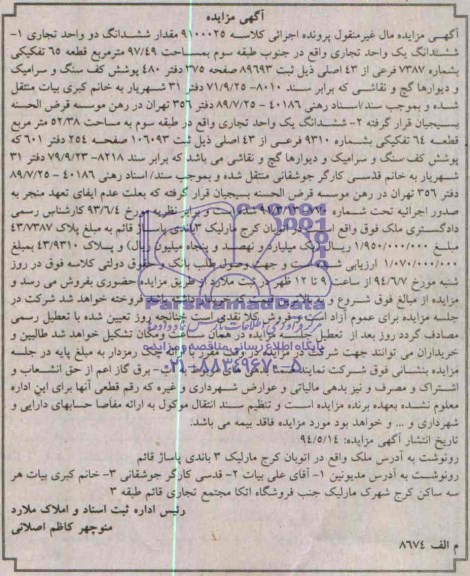 آگهی مزایده
آگهی مزایده مال غیرمنقول پرونده اجرائی کلاسه ۹۱۰۰۰۲۵ مقدار ششدانگ دو واحد تجاری ۱-
ششدانگ یک واحد تجاری واقع در جنوب طبقه سوم بمساحت ۹۷/۴۹ مترمربع قطعه ۶۵ تفکیکی
بشماره ۷۳۸۷ فرعی از ۴۳ اصلی ذیل ثبت ۸۹۶۹۳ صفحه ۳۷۵ دفتر ۴۸۰ پوشش کف سنگ و سرامیک
و دیوارها گچ و نقاشی که برابر سند ۸۰۱۰- ۷۱/۹/۲۵ دفتر ۳۱ شهریار به خانم کبری بیات منتقل
شده و بموجب سند/اسناد رهنی ۴۰۱۸۶ - ۸۹/۷/۲۵ دفتر ۳۵۶ تهران در رهن موسسه قرض الحسنه
بسیجیان قرار گرفته ۲- ششدانگ یک واحد تجاری واقع در طبقه سوم به مساحت ۵۲/۳۸ متر مربع
قطعه ۶۴ تفکیکی بشماره ۹۳۱۰ فرعی از ۴۳ اصلی ذیل ثبت ۱۰۶۰۹۳ صفحه ۲۵۴ دفتر ۶۰۱ که
پوشش کف سنگ و سرامیک و دیوارها گچ و نقاشی می باشد که برابر سند ۸۲۱۸- ۷۹/۹/۲۳ دفتر ۳۱
شهریار به خانم قدسی کارگر جوشقانی منتقل شده و بموجب سند/ اسناد رهنی ۴۰۱۸۶ - ۸۹/۷/۲۵
دفتر ۳۵۶ تهران در رهن موسسه قرض الحسنه بسیجیان قرار گرفته که بعلت عدم ایفای تعهد منجر به
صدور اجرائیه تحت شماره شده است و برابر نظریه مورخ ۹۳/۶/۴ کارشناس رسمی
دادگستری ملک فوق واقع در اتوبان کرج مارلیک ۳ باندی پاساژ قائم به مبلغ پلاک ۴۳/۷۳۸۷
مبلغ ۱/۹۵۰/۰۰۰/۰۰۰ ریال (یک میلیارد و نهصد و پنجاه میلیون ریال) و پلاک ۴۳/۹۳۱۰ بمبلغ
۱/۰۷۰/۰۰۰/۰۰۰ ارزیابی شده است و جهت وصول طلب بانک و حقوق دولتی کلاسه فوق در روز
شنبه مورخ ۹۴/۶/۷ از ساعت ۹ تا ۱۲ ظهر در ثبت ملارد از طریق مزایده حضوری بفروش می رسد و
مزایده از مبالغ فوق شروع و به فروخته خواهد شد شرکت در
جلسه مزایده برای عموم آزاد است و فروش کلا نقدی است چنانچه روز تعیین شده با تعطیل رسمی
مصادف گردد روز بعد از تعطیل جلسه مزایده در همان مکان تشکیل خواهد شد طالبین و
خریداران می توانند جهت شرکت در مزایده در وقت مقرر با ارائه چک رمزدار به مبلغ پایه در جلسه
مزایده بنشانی فوق شرکت نمایند برق گاز اعم از حق انشعاب و
اشتراک و مصرف و نیز بدهی مالیاتی و عوارض شهرداری و غیره که رقم قطعی آنها برای این اداره
معلوم نشده بعهده برنده مزایده است و تنظیم سند انتقال موکول به ارائه مفاصا حسابهای دارایی و
شهرداری و ... و خواهد بود مورد مزایده فاقد بیمه می باشد.
تاریخ انتشار آگهی مزایده: ۹۴/۵/۱۴
رونوشت به آدرس ملک واقع در اتوبان کرج مارلیک ۳ باندی پاساژ قائم
رونوشت به آدرس مدیونین ۱- آقای علی بیات ۲- قدسی کارگر جوشقانی ۳- خانم کبری بیات هر
سه ساکن کرج شهرک مارلیک جنب فروشگاه اتکا مجتمع تجاری قائم طبقه ۳
رئیس اداره ثبت اسناد و املاک ملارد
منوچهر کاظم اصلانی
م الف ۸۶۷۴
ParsNamadData
پایگاه اطلاع رسانی مناقصه و مزایده
۰۲۱-۸۸۳۴۹۶۷۰-۵